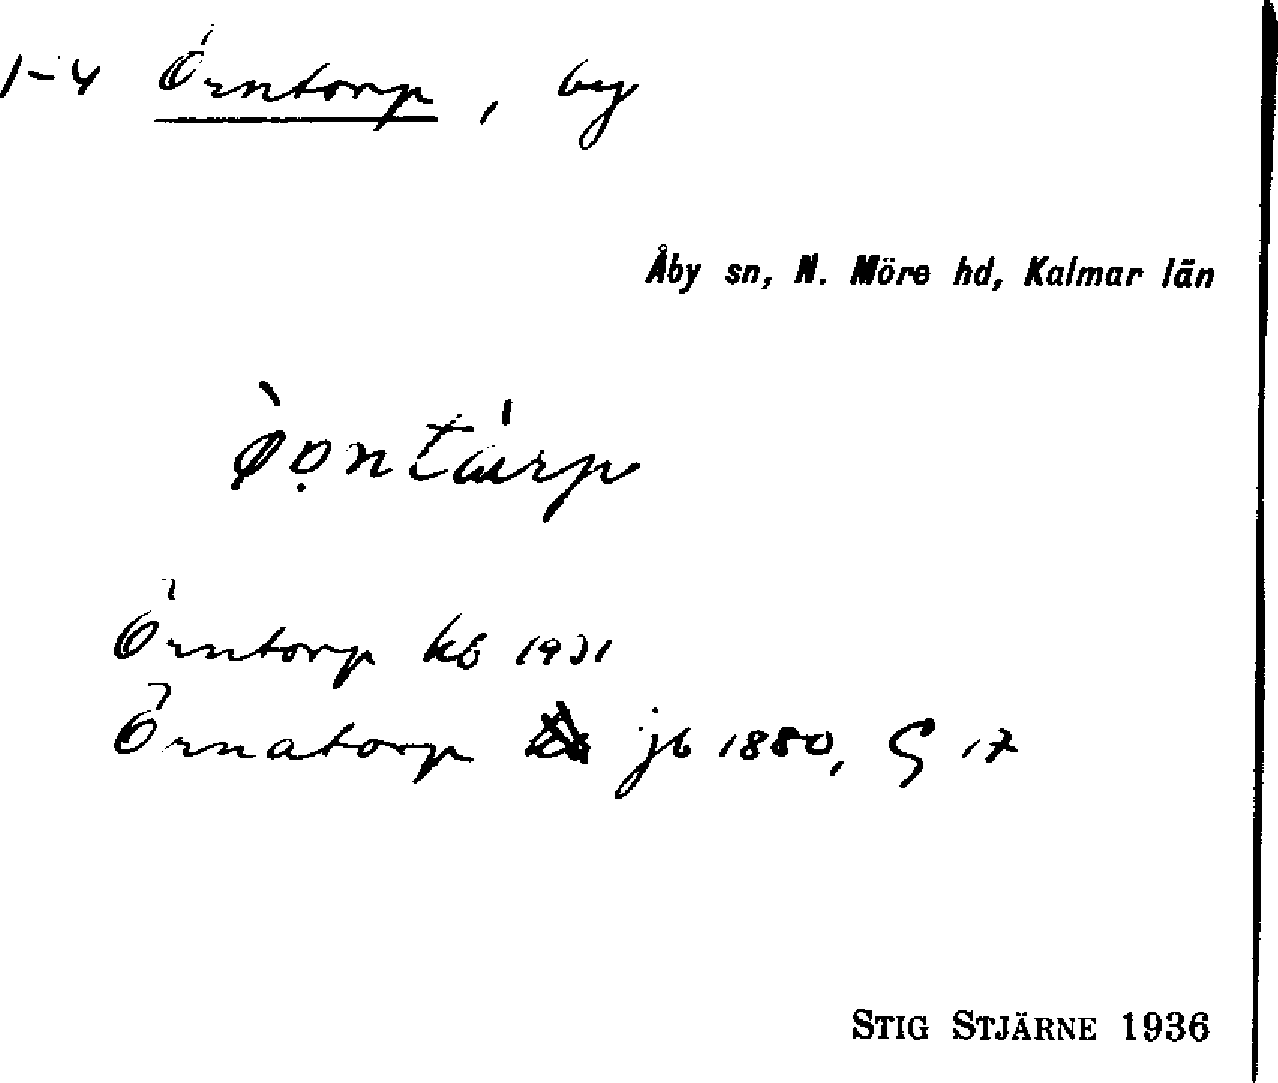 1-4 Örntorp, by
Åby sn, N. Möre hd, Kalmar län
Örntorp kb 1931
Örnatorp jb 1880, G 17
STIG STJÄRNE 1936